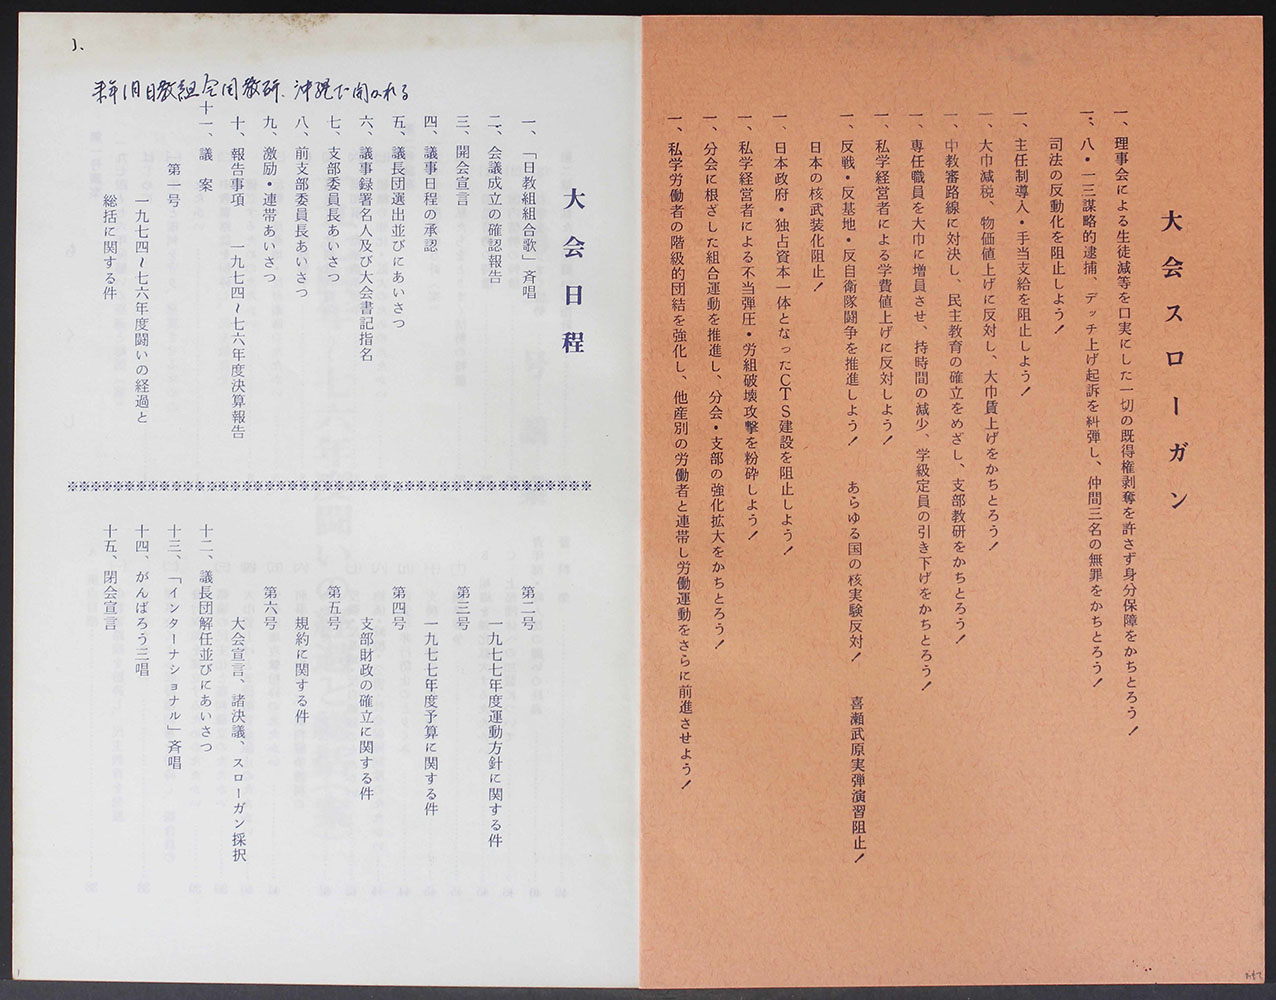 大会スローガン
一、理事会による生徒減等を口実にした一切の既得権剥奪を許さず身分保障をかちとろう！
一、八・一三謀略的逮捕、デッチ上げ起訴を糾弾し、仲間三名の無罪をかちとろう！
司法の反動化を阻止しよう！
一、主任制導入・手当支給を阻止しよう！
一、大巾減税、物価値上げに反対し、大巾賃上げをかちとろう！
一、中教審路線に対決し、民主教育の確立をめざし、支部教研をかちとろう！
一、専任職員を大巾に増員させ、持時間の減少、学級定員の引き下げをかちとろう！
一、私学経営者による学費値上げに反対しよう！
一、反戦・反基地・反自衛隊闘争を推進しよう！　あらゆる国の核実験反対！　喜瀬武原実弾演習阻止！
日本の核武装化阻止！
一、日本政府・独占資本一体となったCTS建設を阻止しよう！
一、私学経営者による不当弾圧・労組破壊攻撃を粉砕しよう！
一、分会に根ざした組合運動を推進し、分会・支部の強化拡大をかちとろう！
一、私学労働者の階級的団結を強化し、他産別の労働者と連帯し労働運動をさらに前進させよう！
1、
来年1月日教組全国教研、沖縄で開かれる
大会日程
一、「日教組組合歌」斉唱
二、会議成立の確認報告
三、開会宣言
四、議事日程の承認
五、議長団選出並びにあいさつ
六、議事録署名人及び大会書記指名
七、支部委員長あいさつ
八、前支部委員長あいさつ
九、激励・連帯あいさつ
十、報告事項　一九七四〜七六年度決算報告
十一、議　案
第一号
一九七四〜七六年度闘いの経過と
総括に関する件
第二号
一九七七年度運動方針に関する件
第三号
一九七七年度予算に関する件
第四号
支部財政の確立に関する件
第五号
規約に関する件
第六号
大会宣言、諸決議、スローガン採択
十二、議長団解任並びにあいさつ
十三、「インターナショナル」斉唱
十四、がんばろう三唱
十五、閉会宣言